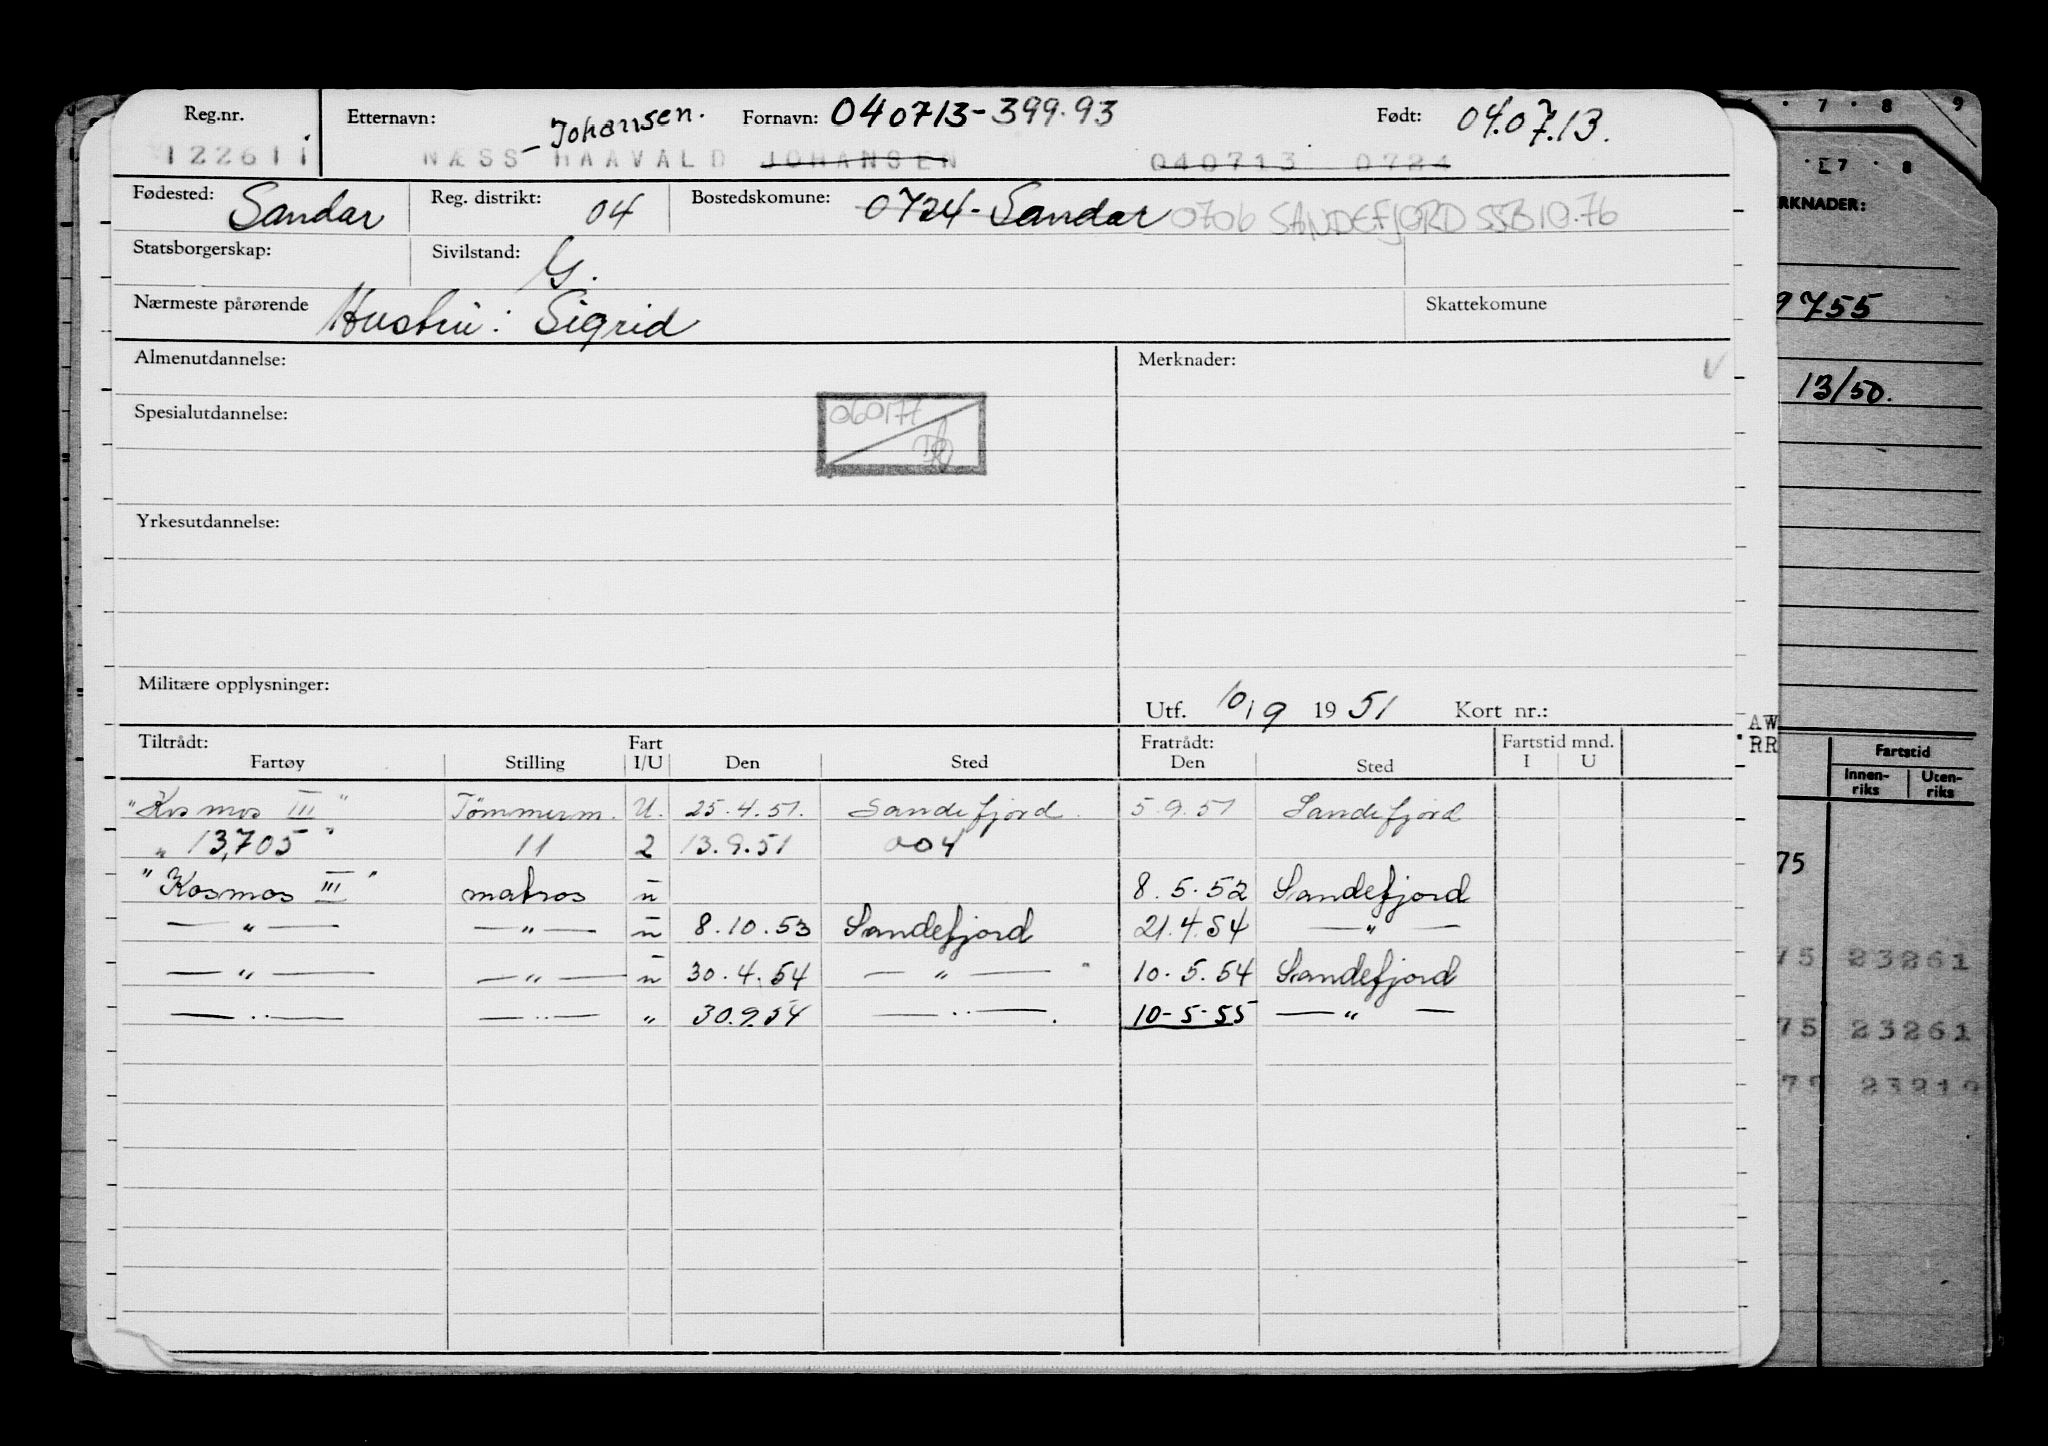 Reg.nr. Etternavn: - Johansen. Fornavn: 040713-399.93 Født: 04.07.13.
122611 NÆSS HAAVALD JOHANSEN 040713 0724
Fødested: Sandar Reg. distrikt: 04 Bostedskomune: 0724 - Sandar 0706 SANDEFJORD SSB 10.76
Statsborgerskap: Sivilstand: G.
Nærmeste pårørende Hustru: Sigrid Skattekomune
Almenutdannelse: Merknader: V
Spesialutdannelse: 060177
Yrkesutdannelse:
Militære opplysninger: Utf. 10/9 1951 Kort nr.:
Tiltrådt: Fart Fratrådt: Fartstid mnd.
Fartøy Stilling I/U Den Sted Den Sted I U
"Kosmos III" Tømmerm. U. 25.4.51. Sandefjord. 5.9.51 Sandefjord
" 13,705 " 11 2 13.9.51 004
"Kosmos III" matros u 8.5.52 Sandefjord
— " — — " — u 8.10.53 Sandefjord 21.4.54 — " —
— " — — " — u 30.4.54 — " — " 10.5.54 Sandefjord
— " — — " — " 30.9.54 — " —. 10-5-55 — " —
AW
RR
7 8 9
7 8
RKNADER:
9755
13/50.
Fartstid
Innen-
riks
Uten-
riks
75
75 23261
75 23261
79